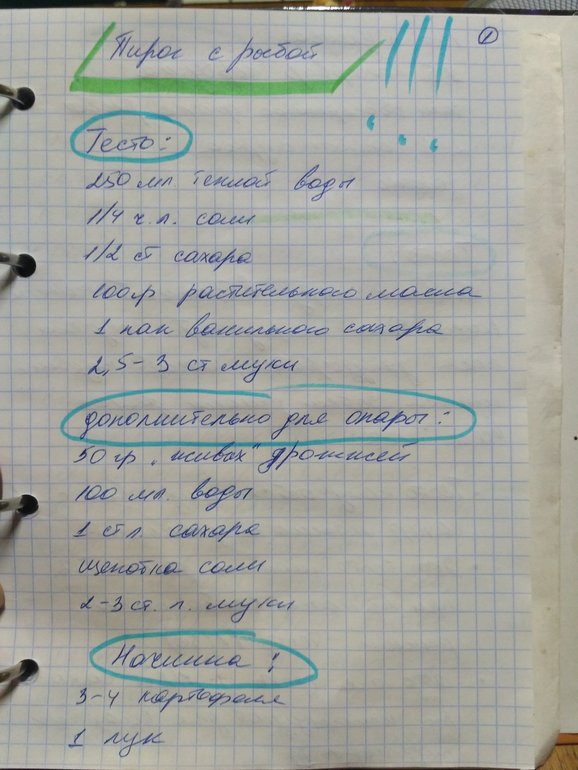 1
Пирог с рыбой
Тесто:
250 мл теплой воды
1/4 ч.л. соли
1/2 ст сахара
100гр растительного масла
1 пак ванильного сахара
2,5-3 ст муки
дополнительно для опары:
50 гр „живых" дрожжей
100 мл. воды
1 ст л. сахара
щепотка соли
2-3 ст. л. муки
Начинка:
3-4 картофеля
1 лук